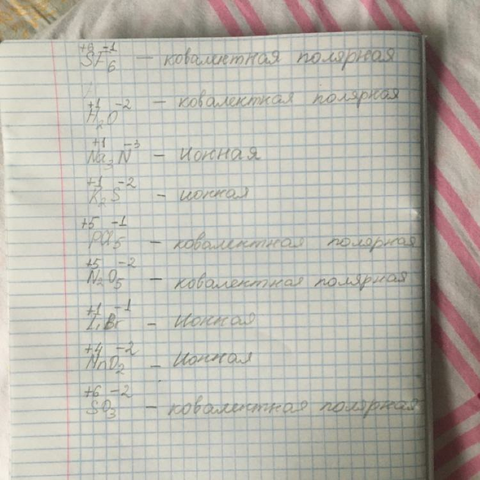 +6 -1
SF6 — ковалентная полярная
+1 -2
H2O — ковалентная полярная
+1 -3
Na3N — ионная
+1 -2
K2S — ионная
+5 -1
PCl5 — ковалентная полярная
+5 -2
N2O5 — ковалентная полярная
+1 -1
LiBr — Ионная
+4 -2
MnO2 — Ионная
+6 -2
SO3 — ковалентная полярная